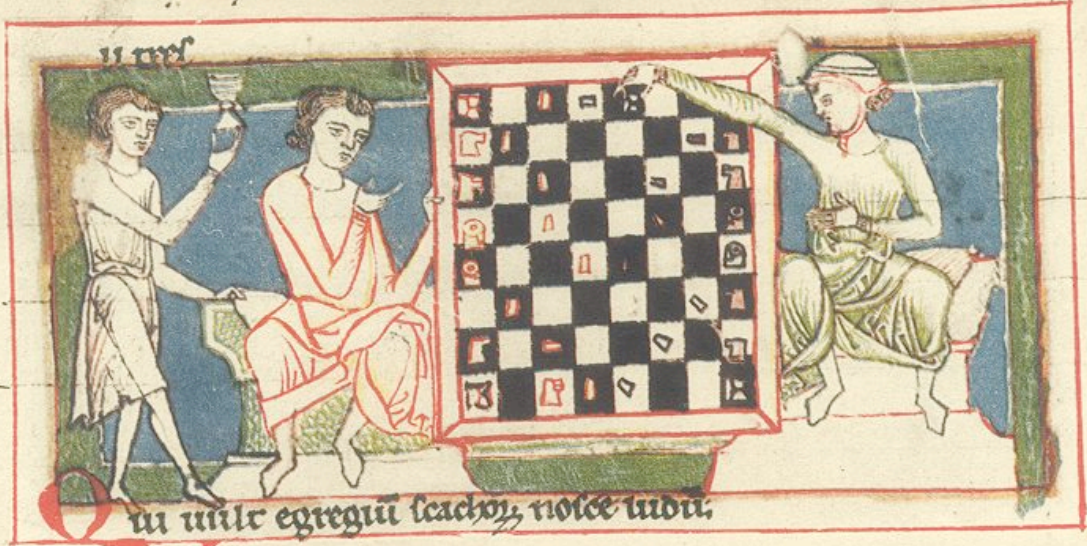 Qui uult egregiū ſcachoꝝ noſce ludū;